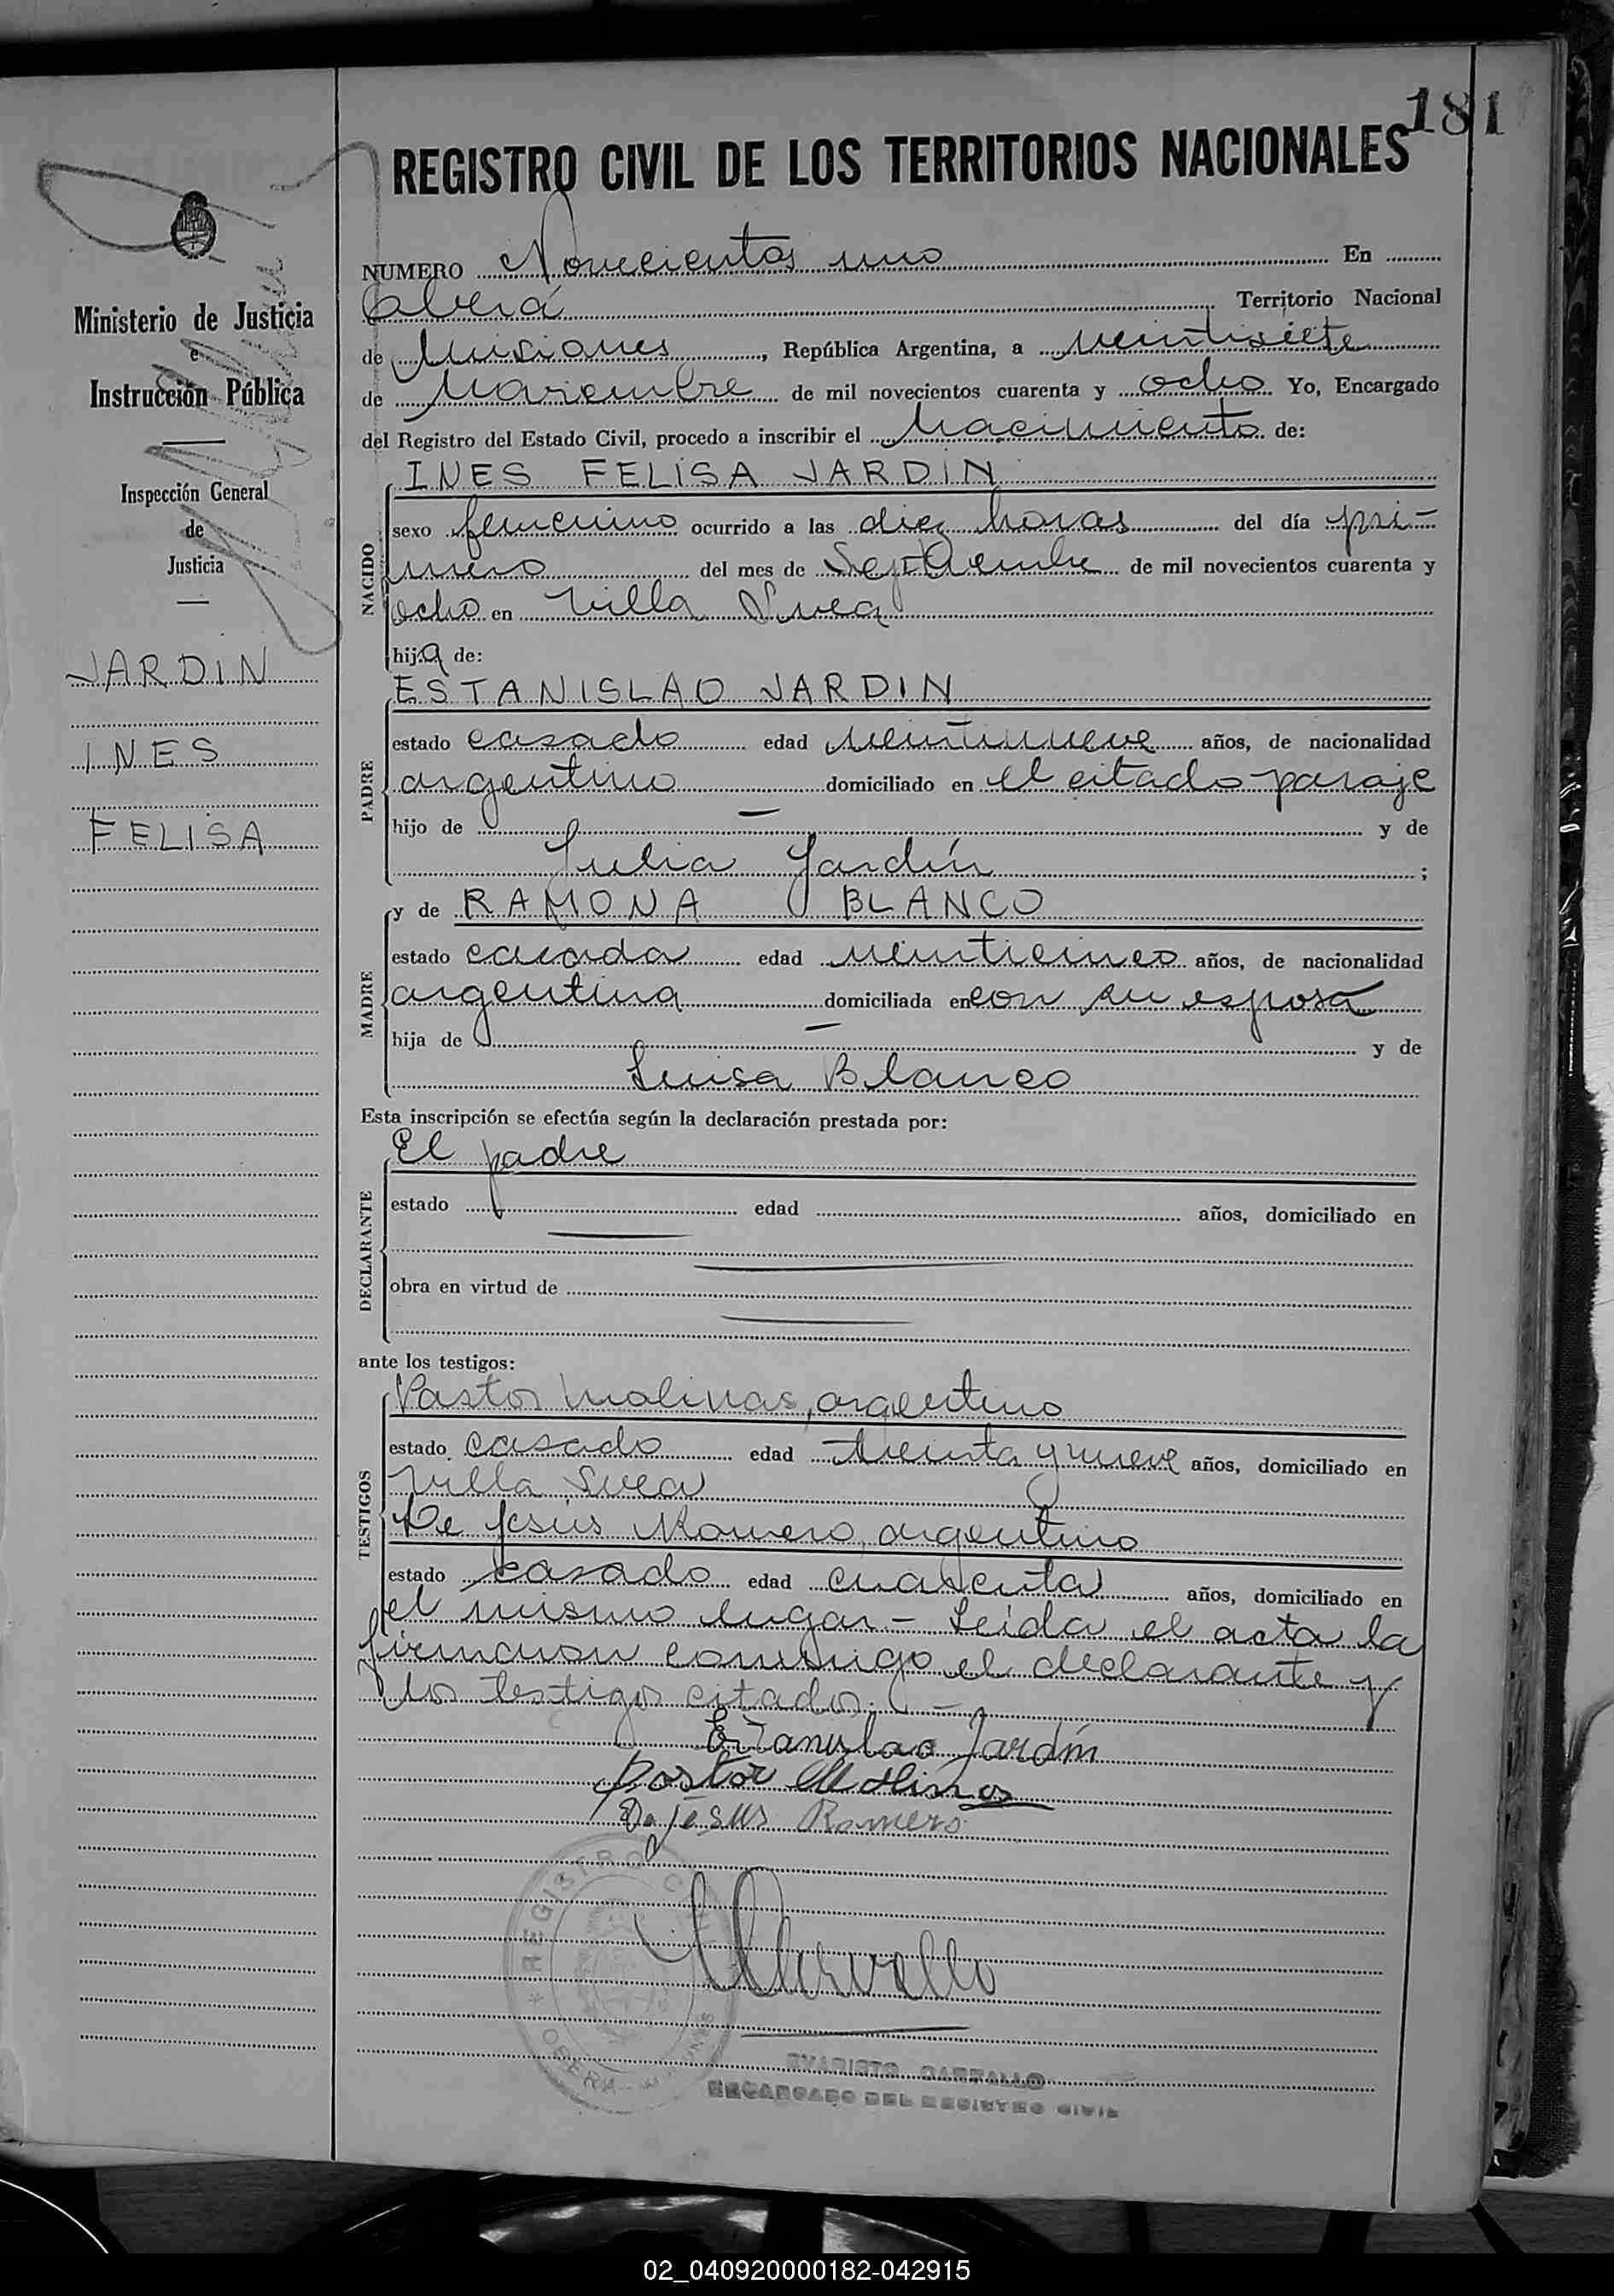 181
REGISTRO CIVIL DE LOS TERRITORIOS NACIONALES
NUMERO Novecientos uno En
Oberá Territorio Nacional
de Misiones, República Argentina, a veintisiete
de Noviembre de mil novecientos cuarenta y ocho Yo, Encargado
del Registro del Estado Civil, procedo a inscribir el Nacimiento de:
INES FELISA JARDIN
sexo femenino ocurrido a las diez horas del día pri-
mero del mes de Septiembre de mil novecientos cuarenta y
ocho en Villa Svea
hija de:
ESTANISLAO JARDIN
estado casado edad veintinueve años, de nacionalidad
argentino domiciliado en el citado paraje
hijo de — y de
Julia Jardín ;
y de RAMONA BLANCO
estado casada edad veinticinco años, de nacionalidad
argentina domiciliada en con su esposo
hija de — y de
Luisa Blanco
Esta inscripción se efectúa según la declaración prestada por:
El padre
estado edad años, domiciliado en
obra en virtud de
ante los testigos:
Pastor Molinas, argentino
estado casado edad treinta y nueve años, domiciliado en
Villa Svea
De Jesús Romero, argentino
estado casado edad cuarenta años, domiciliado en
el mismo lugar.- Leída el acta la
firmaron conmigo el declarante y
los testigos citados.-
Estanislao Jardín
Pastor Molinas
De Jesus Romero
NACIDO
PADRE
MADRE
DECLARANTE
TESTIGOS
Ministerio de Justicia
e
Instrucción Pública
Inspección General
de
Justicia
JARDIN
INES
FELISA
REGISTRO
OBERA
ENCARGADO DEL REGISTRO CIVIL
02_040920000182-042915